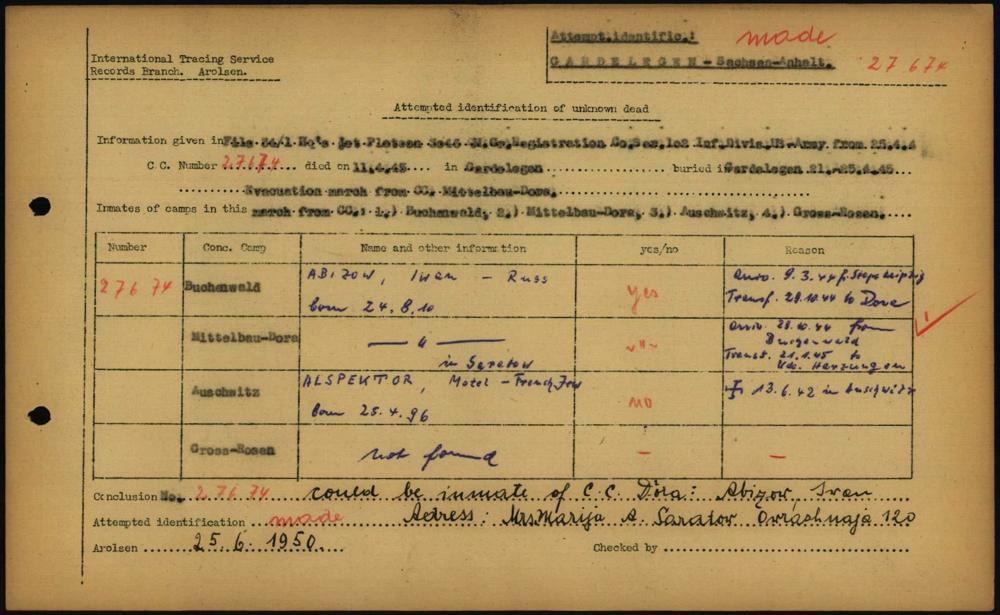 Attempt.identific.: made
GARDELEGEN - Sachsen-Anhalt. 27674
International Tracing Service
Records Branch. Arolsen.
Attempted identification of unknown dead
Information given in File 34/1 Hq's Registration Co. 102 Inf. Divis. US-Army from 25.4.4
C.C. Number 27674 died on 11.4.45 in Gardelegen buried in Gardelegen 21.-25.4.45
Evacuation march from CC. Mittelbau-Dora.
Inmates of camps in this march from CC.: 1.) Buchenwald, 2.) Mittelbau-Dora, 3.) Auschwitz, 4.) Gross-Rosen.
Number Conc. Camp Name and other information yes/no Reason
27674 Buchenwald ABIZOW, Iwan - Russ yes arriv. 9.3.44 f. Leipzig
born 24.8.10 Transf. 28.10.44 to Dora
Mittelbau-Dora — " — -"- arriv. 28.10.44 from
in Saratow Buchenwald
Transf. 21.1.45 to
Kdo. Herzungen
Auschwitz ALSPEKTOR, Motel - French Jew no 13.6.42 in Auschwitz
born 25.4.96
Gross-Rosen not found - -
Conclusion No. 27674 could be inmate of C.C. Dora: Abizow, Ivan
Attempted identification made Adress: Mrs. Marija A. Saratov 120
Arolsen 25.6.1950. Checked by